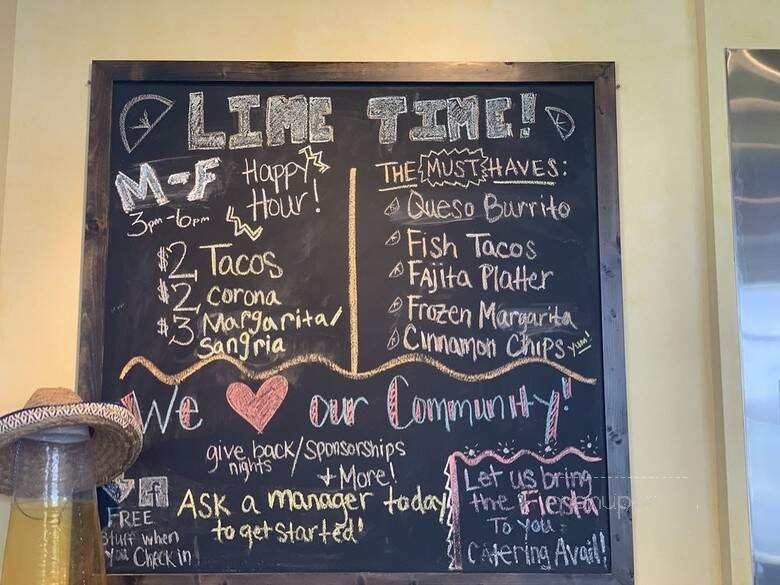 LIME TIME!
M-F Happy Hour!
3pm-6pm
$2 Tacos
$2 Corona
$3 Margarita/
Sangria
THE MUST HAVES:
Queso Burrito
Fish Tacos
FAjita Platter
Frozen Margarita
Cinnamon Chips yum!
We our Community!
give back/Sponsorships
nights
+ More!
ASK a manager today
to get started!
FREE
Stuff when
you Check in
Let us bring
the Fiesta
TO you
Catering Avail!